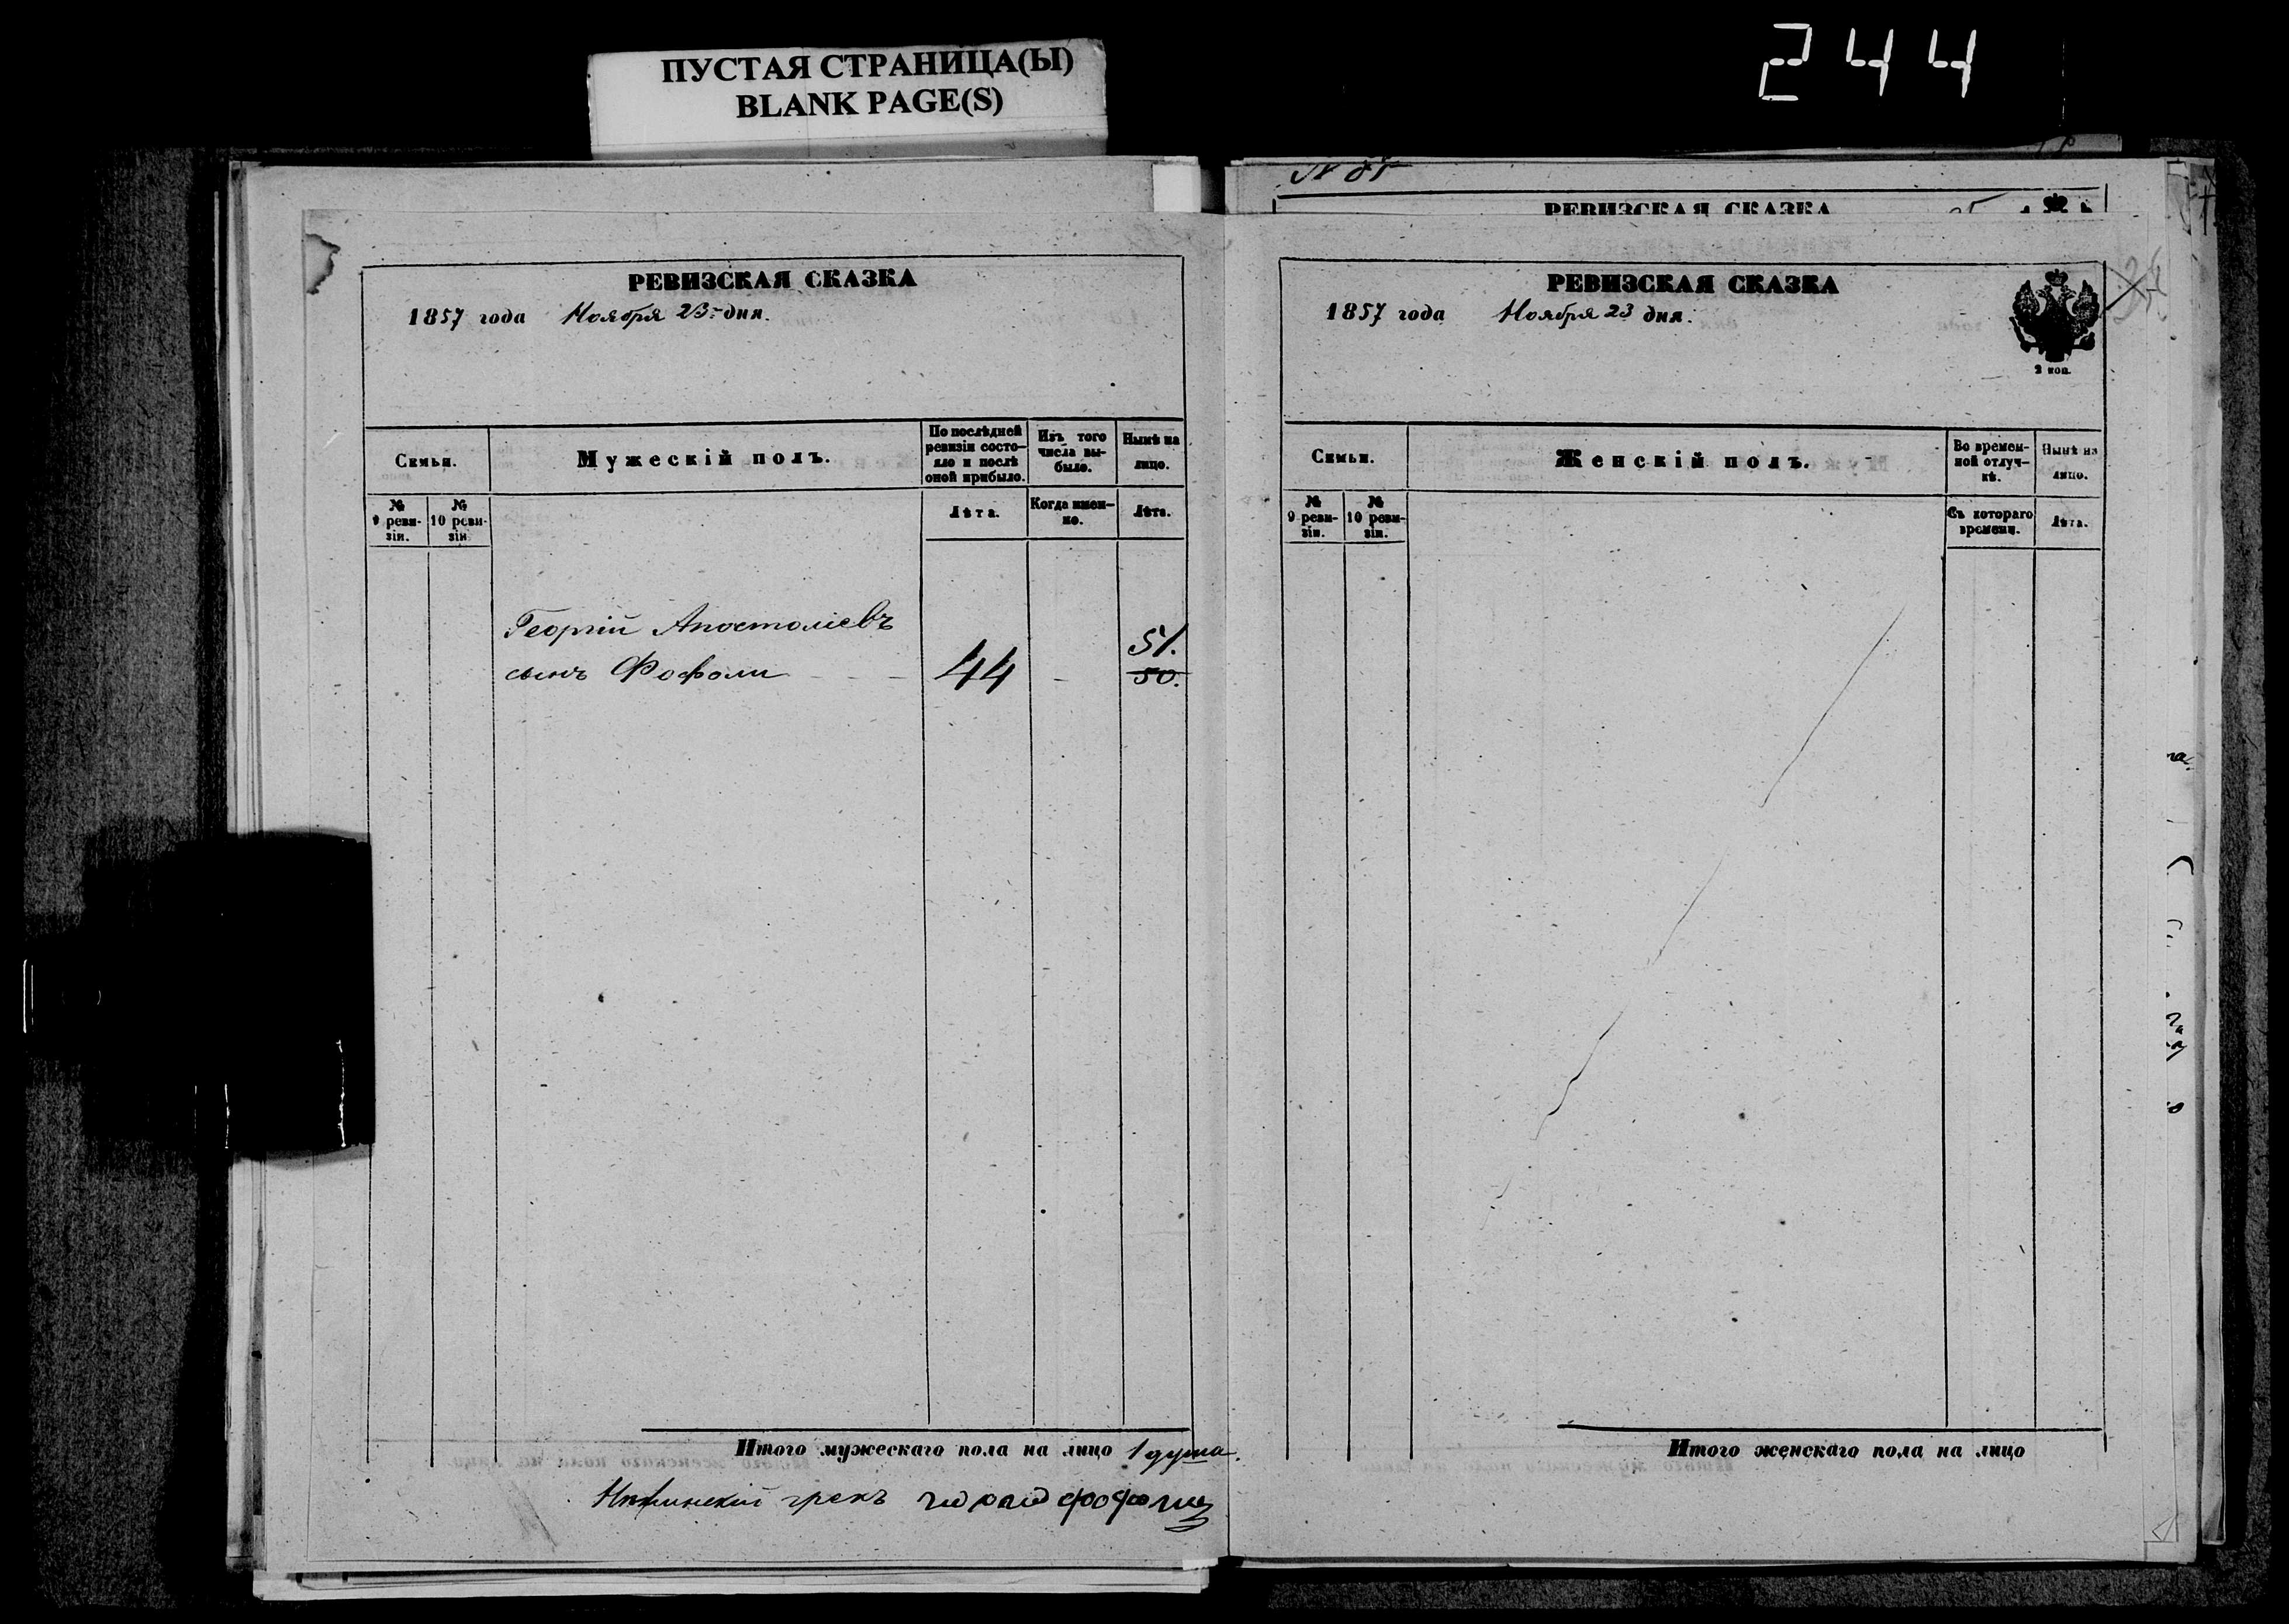 ПУСТАЯ СТРАНИЦА(Ы)
BLANK PAGE(S)
244
РЕВИЗСКАЯ СКАЗКА
РЕВИЗСКАЯ СКАЗКА
1857 года Ноября 23 дня.
Семьи.
Мужескій полъ.
По послѣдней
ревизіи состо-
яло и послѣ
оной прибыло.
Изъ того
числа вы-
было.
Нынѣ на
лицо.
№
9 реви-
зіи.
№
10 реви-
зіи.
Лѣта.
Когда имен-
но.
Лѣта.
Георгій Апостоліевъ
сынъ Фофоли - - - 44 - 51.
50.
Итого мужескаго пола на лицо 1 душа.
Нѣжинскій грекъ
РЕВИЗСКАЯ СКАЗКА
1857 года Ноября 23 дня.
2 коп.
Семьи.
Женскій полъ.
Во времен-
ной отлуч-
кѣ.
Нынѣ на
лицо.
№
9 реви-
зіи.
№
10 реви-
зіи.
Съ котораго
времени.
Лѣта.
Итого женскаго пола на лицо